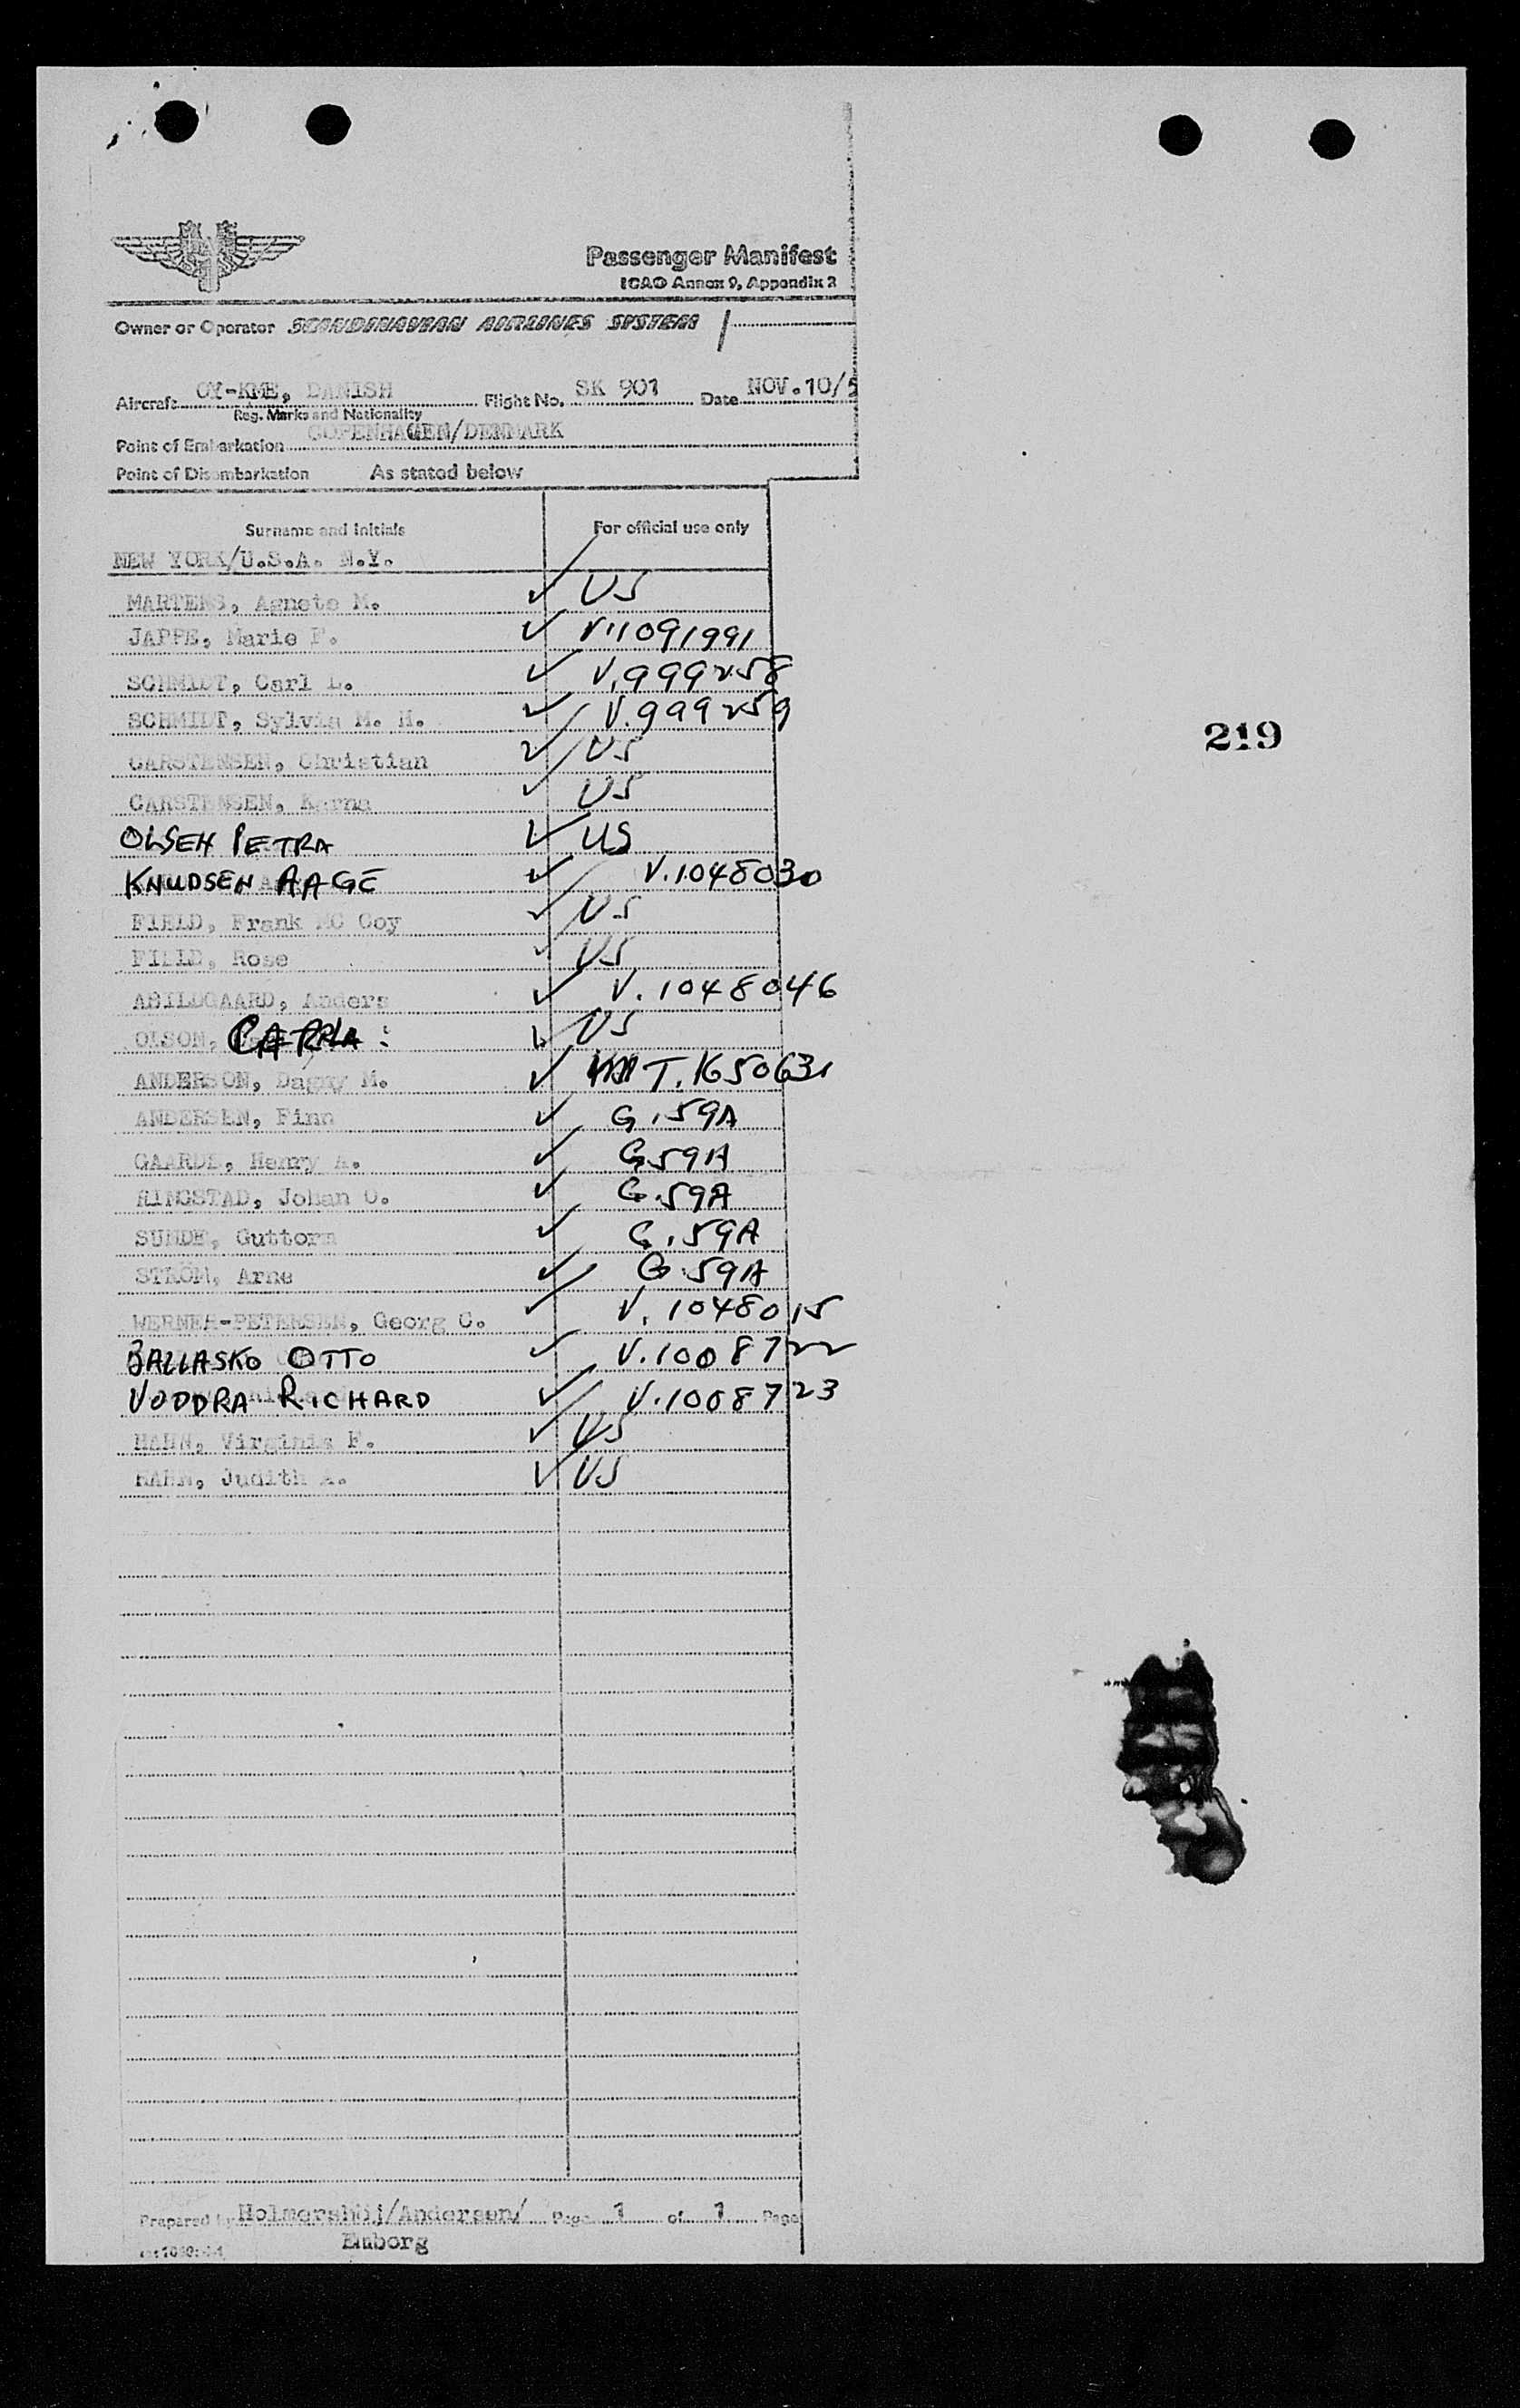 Passenger Manifest
ICAO Annex 9, Appendix 2
Owner or Operator SCANDINAVIAN AIRLINES SYSTEM
Aircraft OY-KME, DANISH Flight No. SK 901 Date NOV.10/5
Reg. Marks and Nationality
Point of Embarkation COPENHAGEN/DENMARK
Point of Disembarkation As stated below
Surname and Initials For official use only
NEW YORK/U.S.A. N.Y.
MARTENS, Agnete M. ✓ US
JAPPE, Marie P. ✓ V.1091991
SCHMIDT, Carl L. ✓ V.999258
SCHMIDT, Sylvia M. H. ✓ V.999259
219
CARSTENSEN, Christian ✓ US
CARSTENSEN, Karna ✓ US
OLSEN PETRA ✓ US
KNUDSEN AAGE ✓ V.1048030
FIELD, Frank MC Coy ✓ US
FIELD, Rose ✓ US
ABILDGAARD, Anders ✓ V.1048046
OLSON, CARLA: ✓ US
ANDERSON, Dagny M. ✓ T.1650631
ANDERSEN, Finn ✓ G.59A
GAARDE, Henry A. ✓ G59A
RINGSTAD, Johan O. ✓ G.59A
SUNDE, Guttorm ✓ G.59A
STRÖM, Arne ✓ G.59A
WERNER-PETERSEN, Georg C. ✓ V.1048015
BALLASKO OTTO ✓ V.1008722
VODDRA RICHARD ✓ V.1008723
HAHN, Virginia F. ✓ US
HAHN, Judith A. ✓ US
Prepared by Holmershöj/Andersen/ Page 1 of 1 Page
Emborg